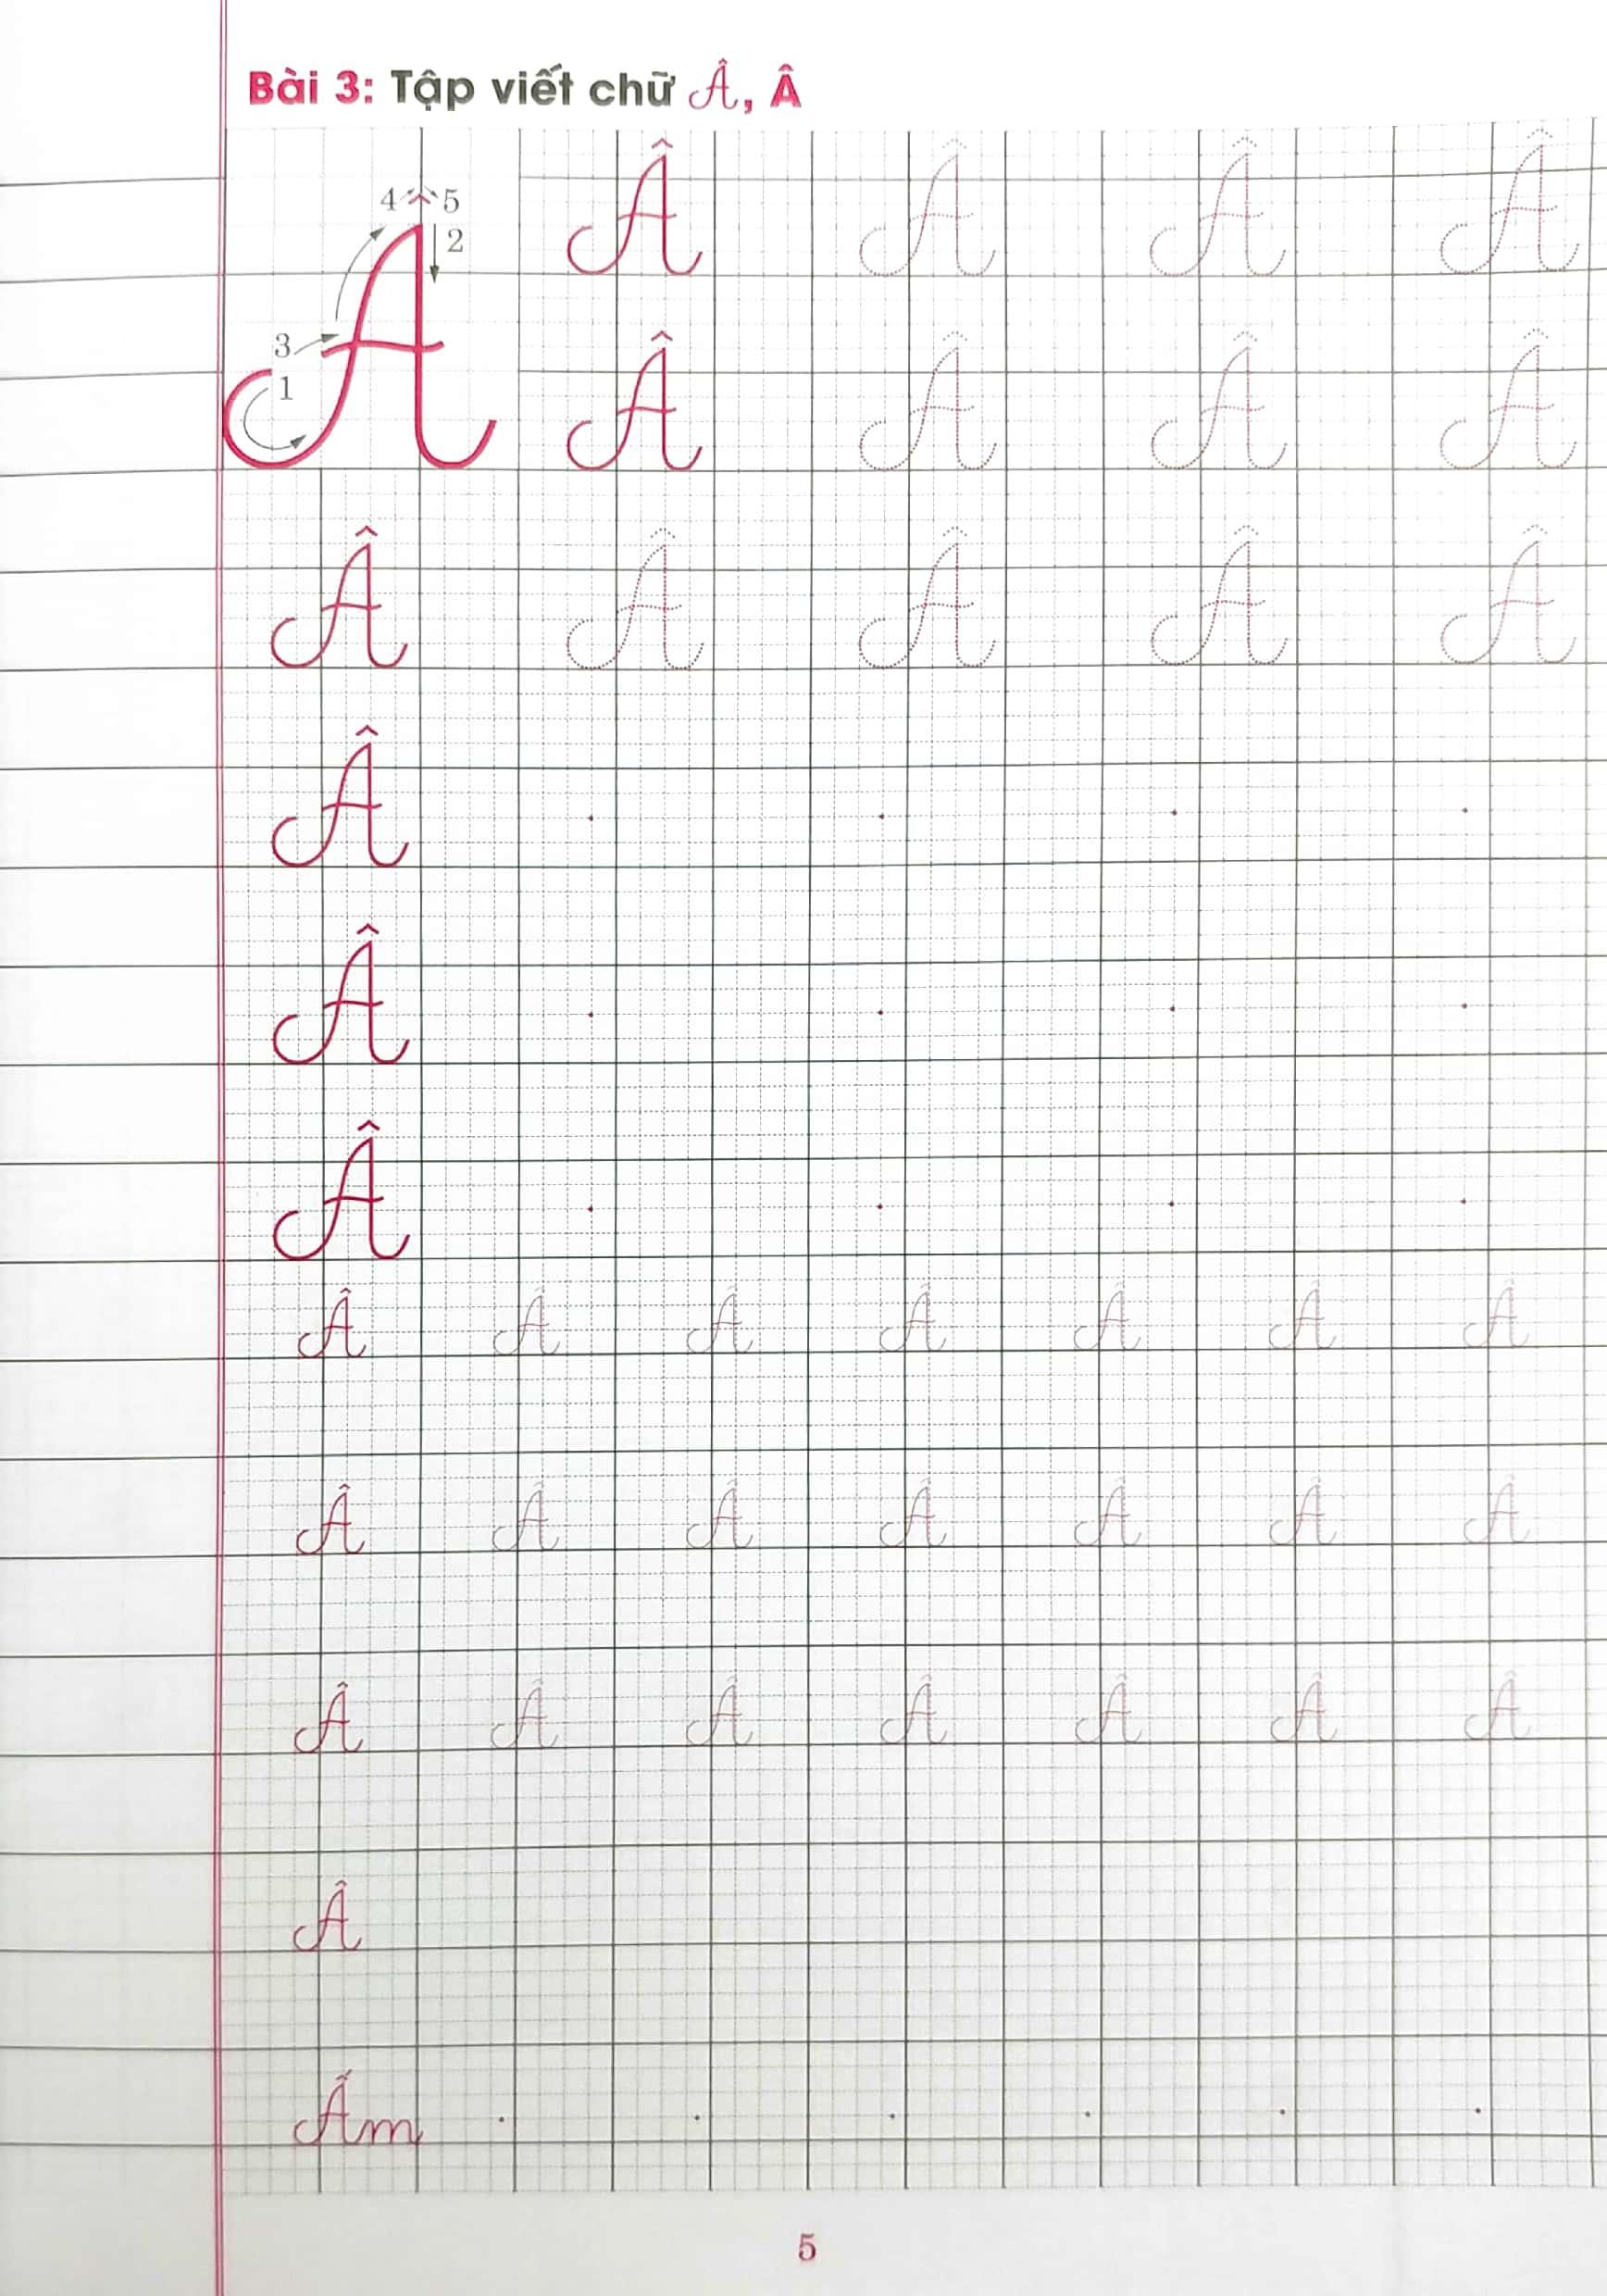 Bài 3: Tập viết chữ Â, Â
4 5
2
3
1
Â Â Â Â
Â Â Â Â
Â Â Â Â Â
Â
Â
Â
Â Â Â Â Â Â Â
Â Â Â Â Â Â Â
Â Â Â Â Â Â Â
Â
Ấm
5